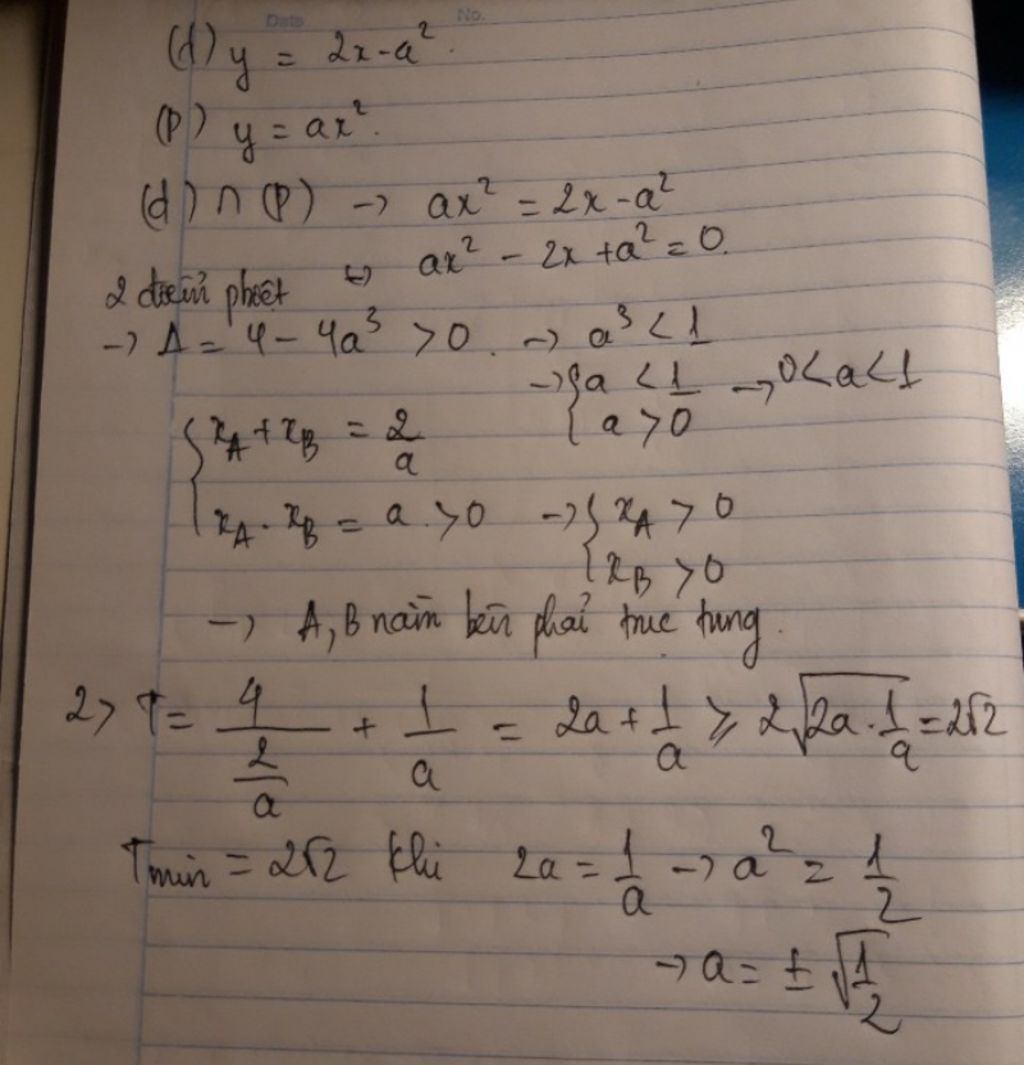 Date No.
(d) y = 2x - a².
(P) y = ax².
(d) ∩ (P) → ax² = 2x - a²
⇔ ax² - 2x + a² = 0.
2 điểm phân biệt
→ Δ = 4 - 4a³ > 0. → a³ < 1
→ { a < 1 → 0 < a < 1
a > 0
{ x_A + x_B = 2/a
x_A . x_B = a > 0 → { x_A > 0
x_B > 0
→ A, B nằm bên phải trục tung.
2> T = 4/(2/a) + 1/a = 2a + 1/a ≥ 2√(2a . 1/a) = 2√2
T min = 2√2 khi 2a = 1/a → a² = 1/2
→ a = ± √(1/2)